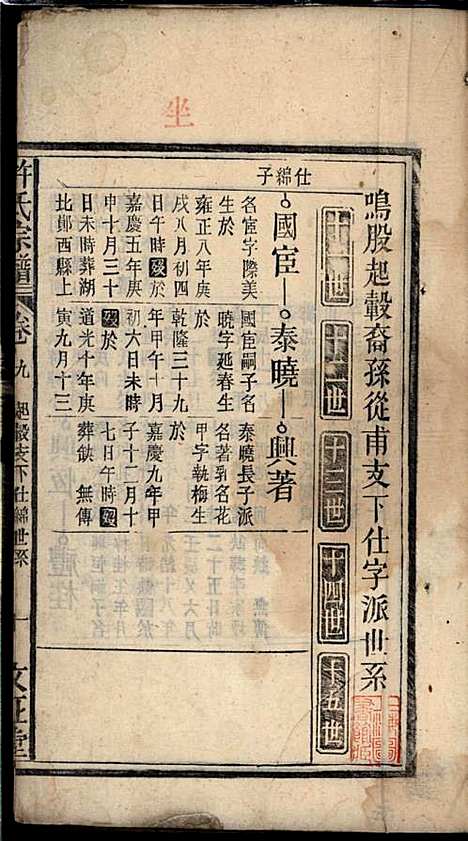 坐
鳴股起轂裔孫從甫支下仕字派世系
十一世
十二世
十三世
十四世
十五世
仕綿子
國宦
名宦字際美
生於
雍正八年庚
戌八月初四
日午時歿於
嘉慶五年庚
申十月三十
日未時葬湖
北鄖西縣上
泰曉
國宦嗣子名
曉字延春生
於
乾隆三十九
年甲午十月
初六日未時
歿於
道光十年庚
寅九月十三
興著
泰曉長子派
名著乳名花
甲字執梅生
於
嘉慶九年甲
子十二月十
七日午時歿
葬缺 無傳
許氏宗譜
卷九 起轂支下仕綿世系
一
文正堂